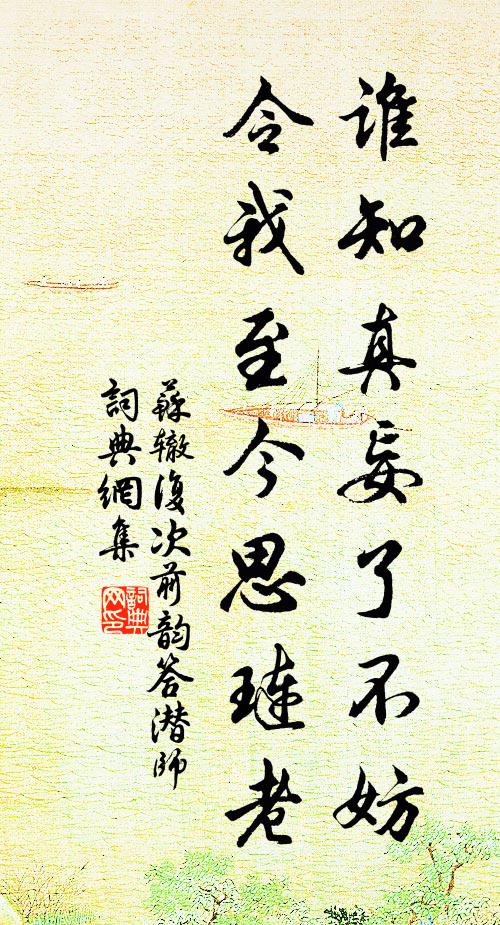 谁知真妄了不妨
令我至今思琏老
蘇辙復次前韵答潜師
詞典網集
詞典
网印